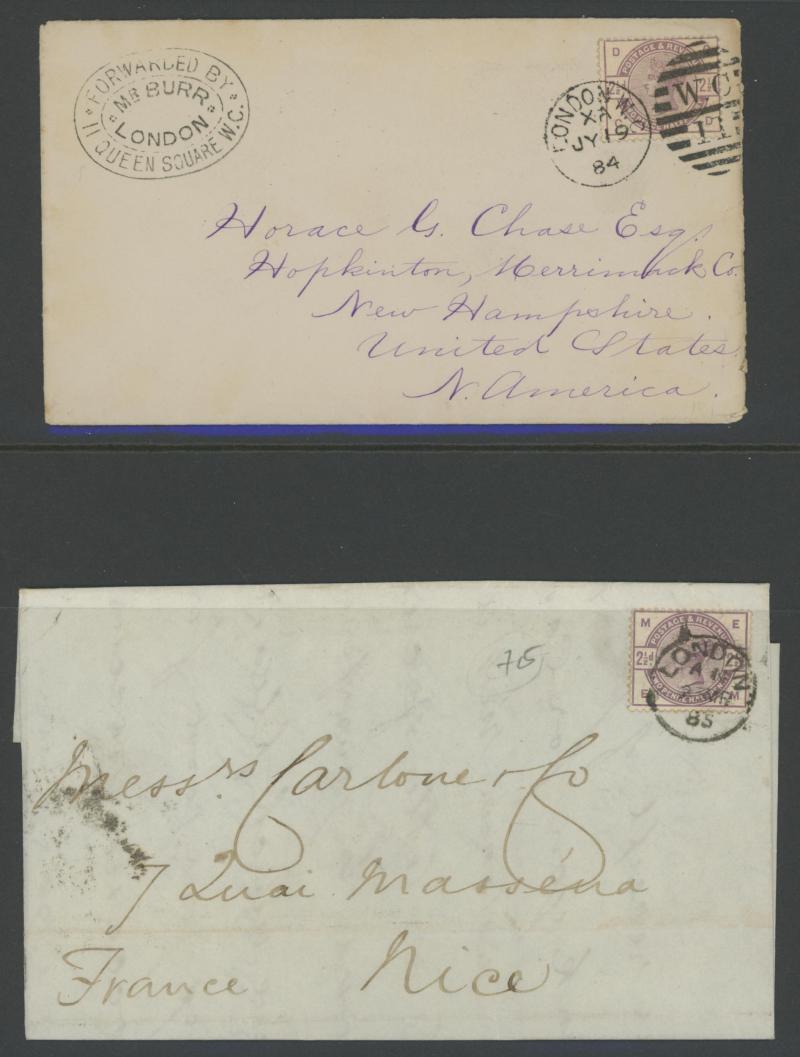 FORWARDED BY
MR BURR.
LONDON
11 QUEEN SQUARE W.C.
D
POSTAGE & REVE
2½
D
LONDON W.C
XA
JY 19
84
W.C
11
Horace G. Chase Esq.
Hopkinton, Merrimack Co.
New Hampshire.
United States
N. America.
75
M E
POSTAGE & REVENUE
2½d
E M
LONDON
A
85
Messrs Carlone & Co
7 Quai Masséna
France Nice